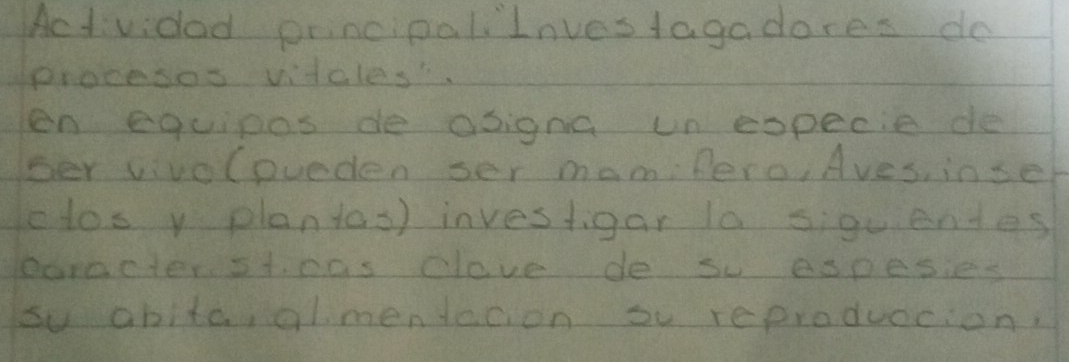 Actividad principal. "Investagadores de
procesos vitales".
en equipos de asigna un especie de
ser vivo (pueden ser mamifero, Aves, inse
ctos y plantas) investigar la siguientes
caracteristicas clave de su espesies
su abita, alimentacion su reproduccion.